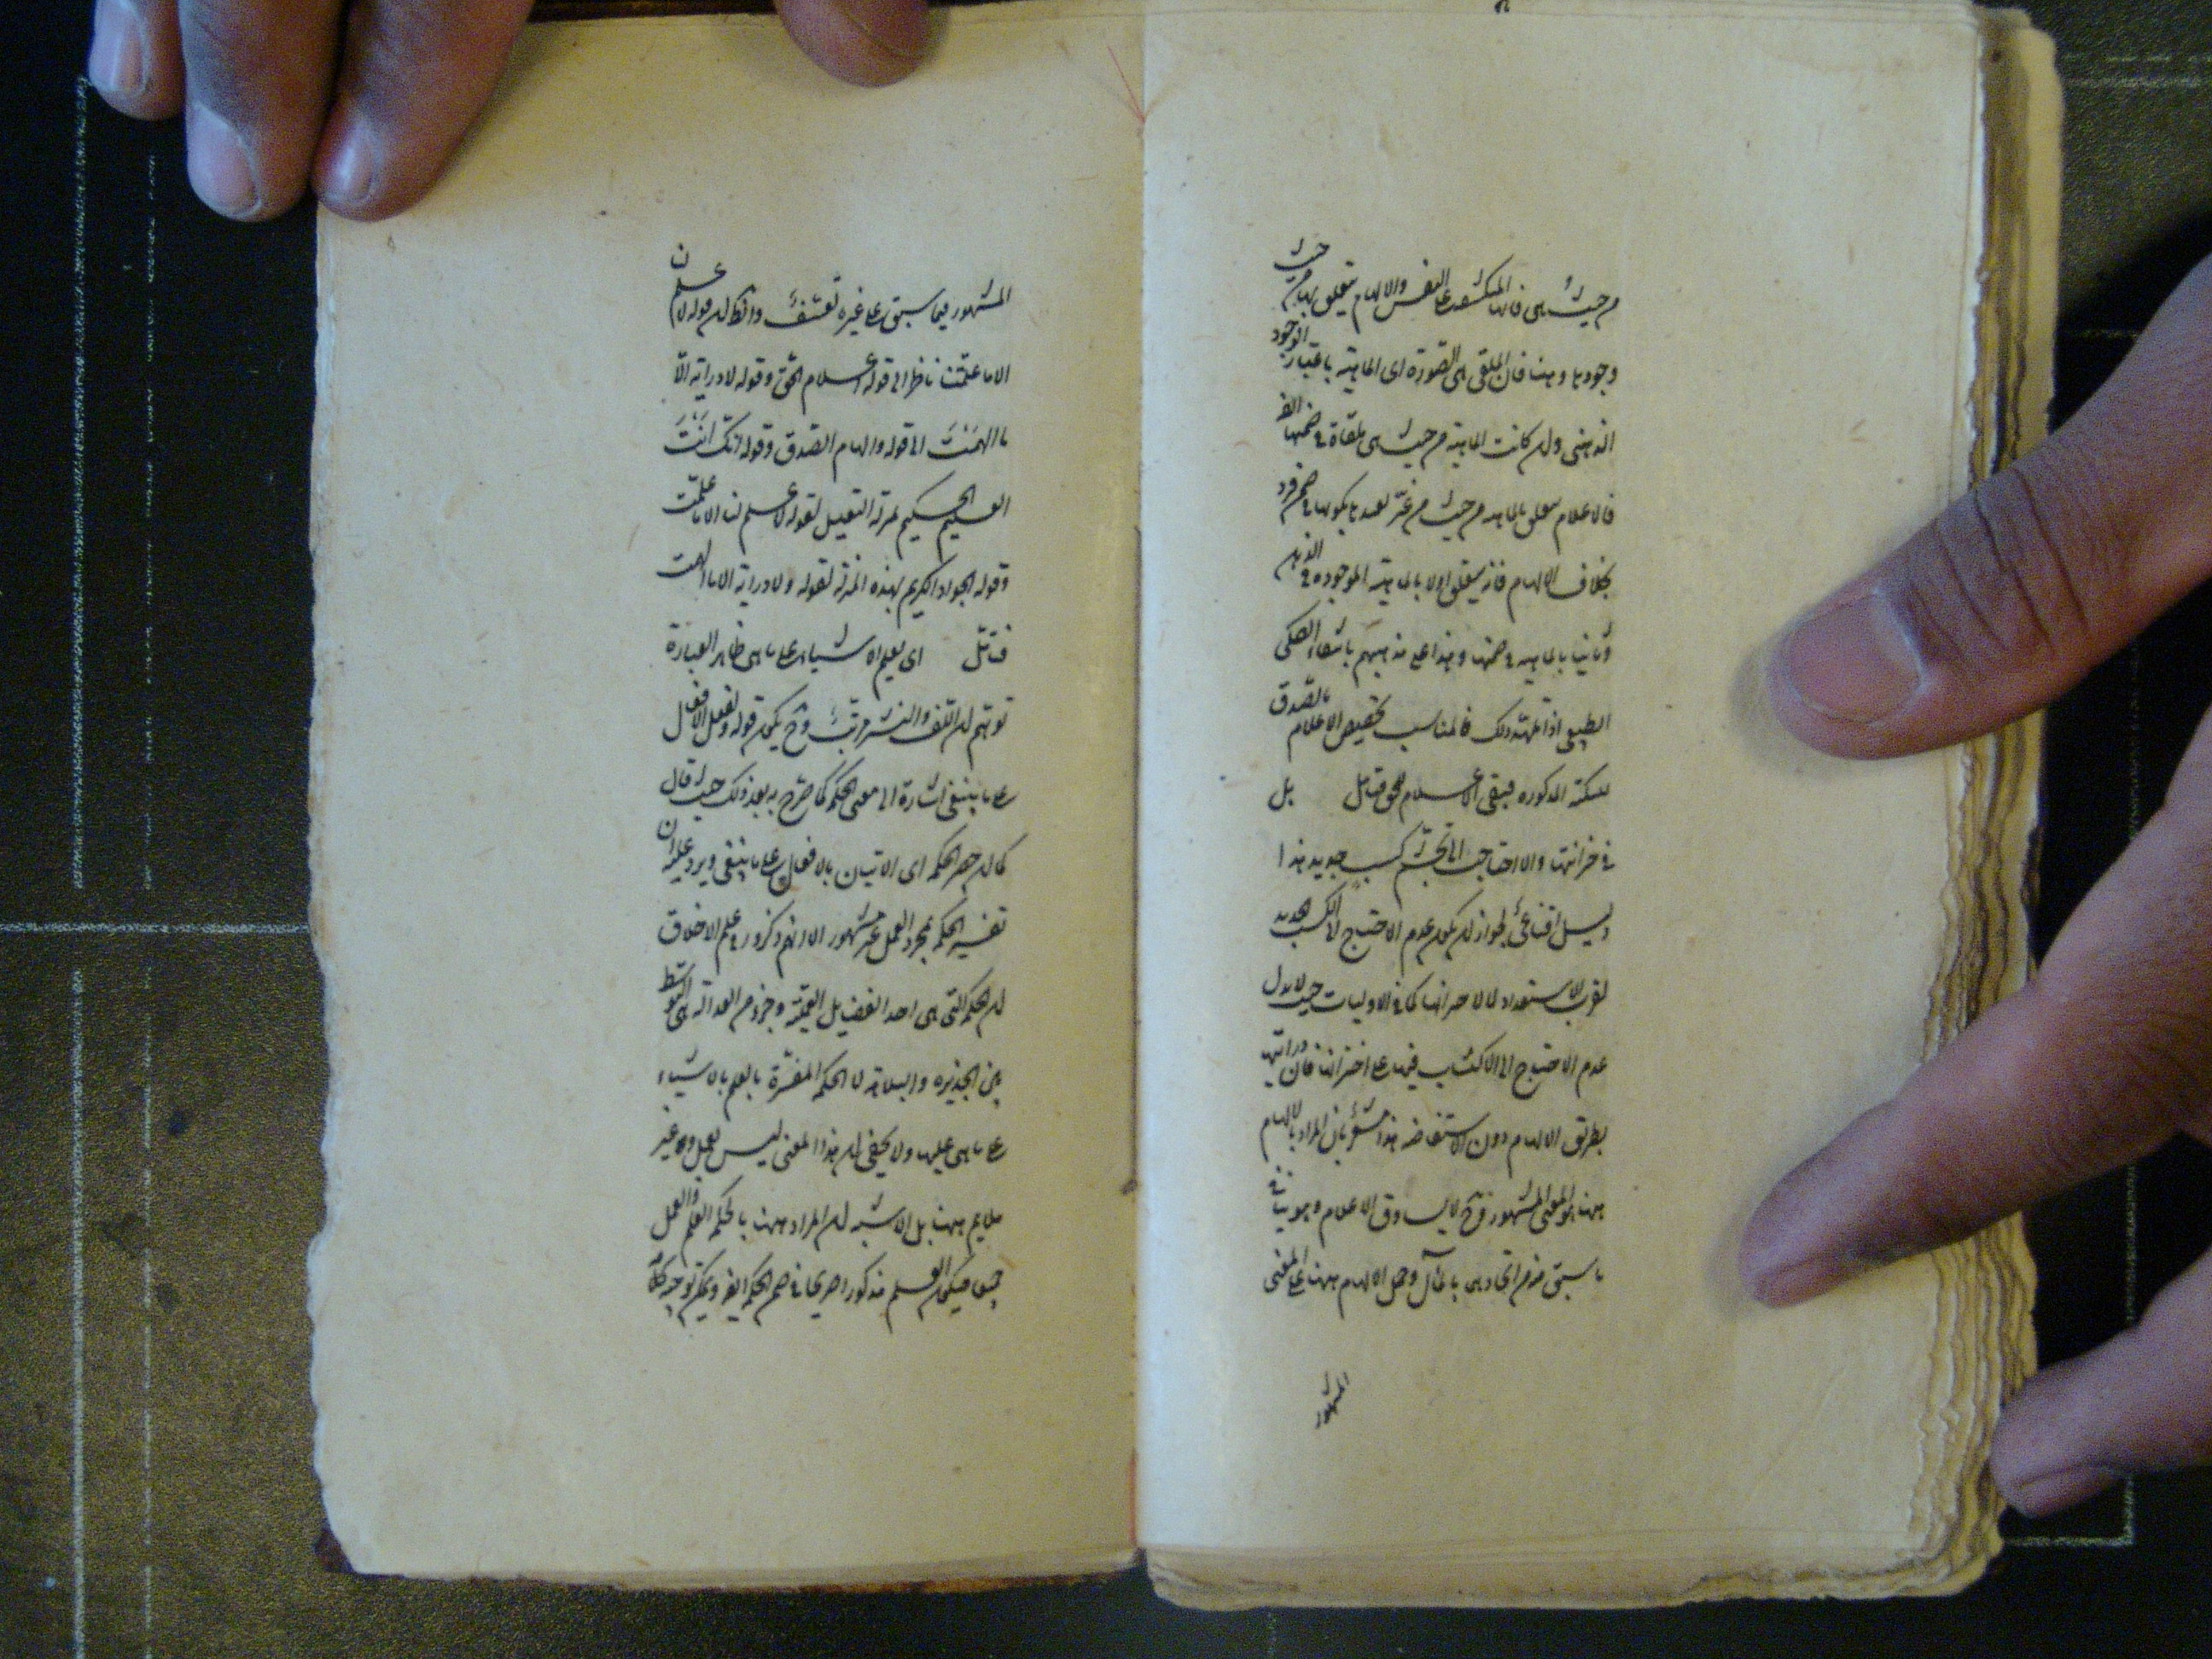 من حيث هى فانها المنكشفة على النفس والالهام يتعلق بها من حيث
وجودها وههنا فان الملقى هى الصورة اى الماهية باعتبار الوجود
الذهنى وان كانت الماهية من حيث هى ملقاة فى ضمنها
فالاعلام يتعلق بالماهية من حيث هى من غير تقييدها بكونها فى ضمن فرد
بخلاف الالهام فانه يتعلق اولا بالماهية الموجودة فى الذهن
وثانيا بالماهية فى ضمنها وهذا على مذهبهم بانتفاء الكلى
الطبيعى اذا تمهد ذلك فالمناسب تخصيص الاعلام بالصدق
للنكتة المذكورة فبقى الاعلام للحق فتأمل بل
فى خزانتها والا احتاجت الى تجشم كسب جديد هذا
دليل اقناعى لجواز ان يكون عدم الاحتياج الى الكسب الجديد
لقرب الاستعداد لا لاختزانها كما فى الاوليات حيث لا يدل
عدم الاحتياج الى الاكتساب فيها على اختزانها فان دراتها
بطريق الالهام دون الاستفاضة هذا مشعر بان المراد بالالهام
ههنا هو المعنى المشهور وح لا يساوق الاعلام وهو ينافى
ما سبق منه من اتحادهما بالمآل وحمل الالهام ههنا على المعنى
المشهور
المشهور فيما سبق على غيره تعسف والظاهر ان قوله لا علم لنا
الا ما علمتنا ناظر الى قوله اعلام الحق وقوله لا دراية الا
ما الهمت الى قوله والهام الصدق وقوله انك انت
العليم الحكيم بمنزلة التعليل لقوله لا علم لنا الا ما علمت
وقوله الجواد الكريم بهذه المنزلة لقوله ولا دراية الا ما الهمت
فتأمل اى يعلم الاشياء على ما هى ظاهر العبارة
توهم ان اللف والنشر مرتب وح يكون قوله ويفعل الافعال
على ما ينبغى اشارة الى معنى الحكمة كما صرح به بعد ذلك حيث قال
كما ان جهر الحكمة اى الاتيان بالافعال على ما ينبغى ويرد عليه ان
تفسير الحكمة بمجرد العمل غير مشهور الا انهم ذكروا فى علم الاخلاق
ان الحكمة التى هى احد الفضايل وجزء من العدالة هى التوسط
بين الجربزة والبلاهة لا الحكمة المفسرة بالعلم بالاشياء
على ما هى عليها ولا يخفى ان هذا المعنى ليس بعمل وهو غير
ملايم ههنا بل الاشبه ان المراد ههنا بالحكمة العلم والعمل
جميعا فيكون العلم مذكورا صريحا فى ضمن الحكمة ايضا ويمكن توجيه كلامه